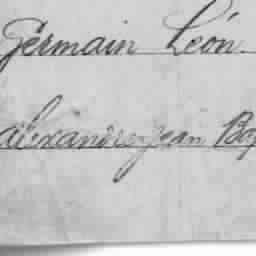 Germain Léon
alexandre jean